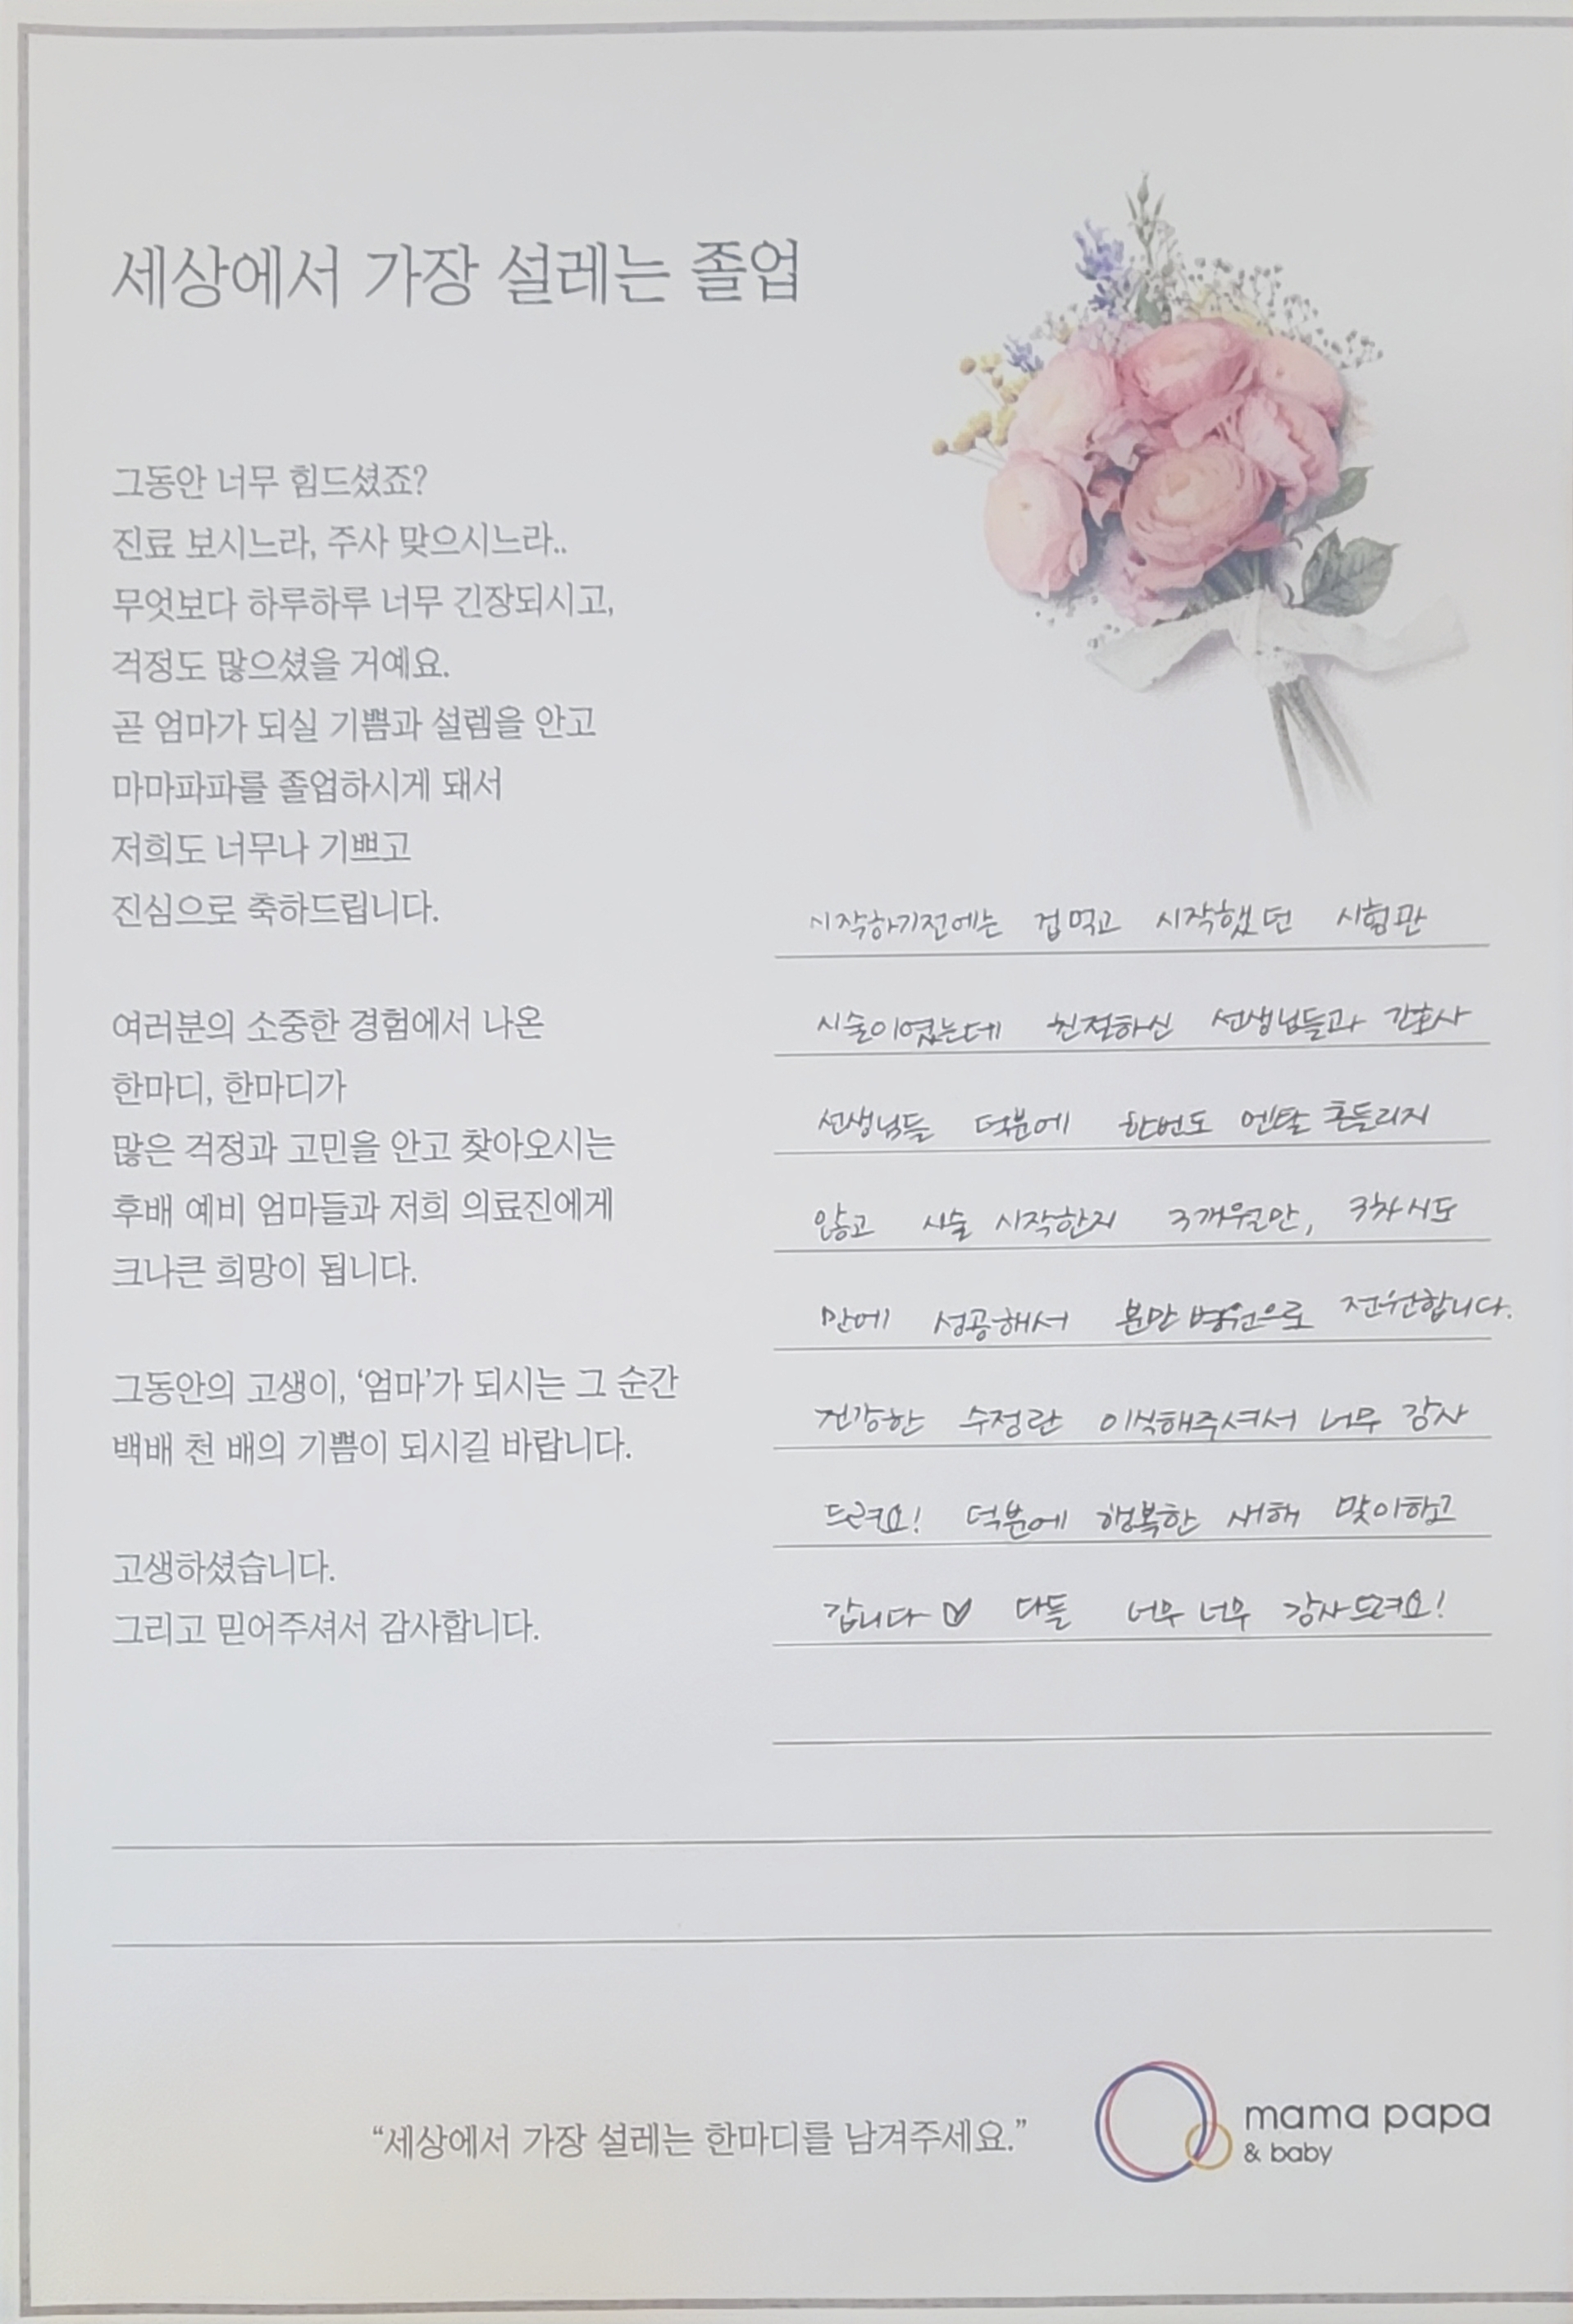 세상에서 가장 설레는 졸업
그동안 너무 힘드셨죠?
진료 보시느라, 주사 맞으시느라..
무엇보다 하루하루 너무 긴장되시고,
걱정도 많으셨을 거예요.
곧 엄마가 되실 기쁨과 설렘을 안고
마마파파를 졸업하시게 돼서
저희도 너무나 기쁘고
진심으로 축하드립니다.
여러분의 소중한 경험에서 나온
한마디, 한마디가
많은 걱정과 고민을 안고 찾아오시는
후배 예비 엄마들과 저희 의료진에게
크나큰 희망이 됩니다.
그동안의 고생이, ‘엄마’가 되시는 그 순간
백배 천 배의 기쁨이 되시길 바랍니다.
고생하셨습니다.
그리고 믿어주셔서 감사합니다.
시작하기전에는 겁먹고 시작했던 시험관
시술이였는데 친절하신 선생님들과 간호사
선생님들 덕분에 한번도 멘탈 흔들리지
않고 시술 시작한지 3개월만, 3차시도
만에 성공해서 분만병원으로 전원합니다.
건강한 수정란 이식해주셔서 너무 감사
드려요! 덕분에 행복한 새해 맞이하고
갑니다♡ 다들 너무 너무 감사드려요!
“세상에서 가장 설레는 한마디를 남겨주세요.”
mama papa
& baby